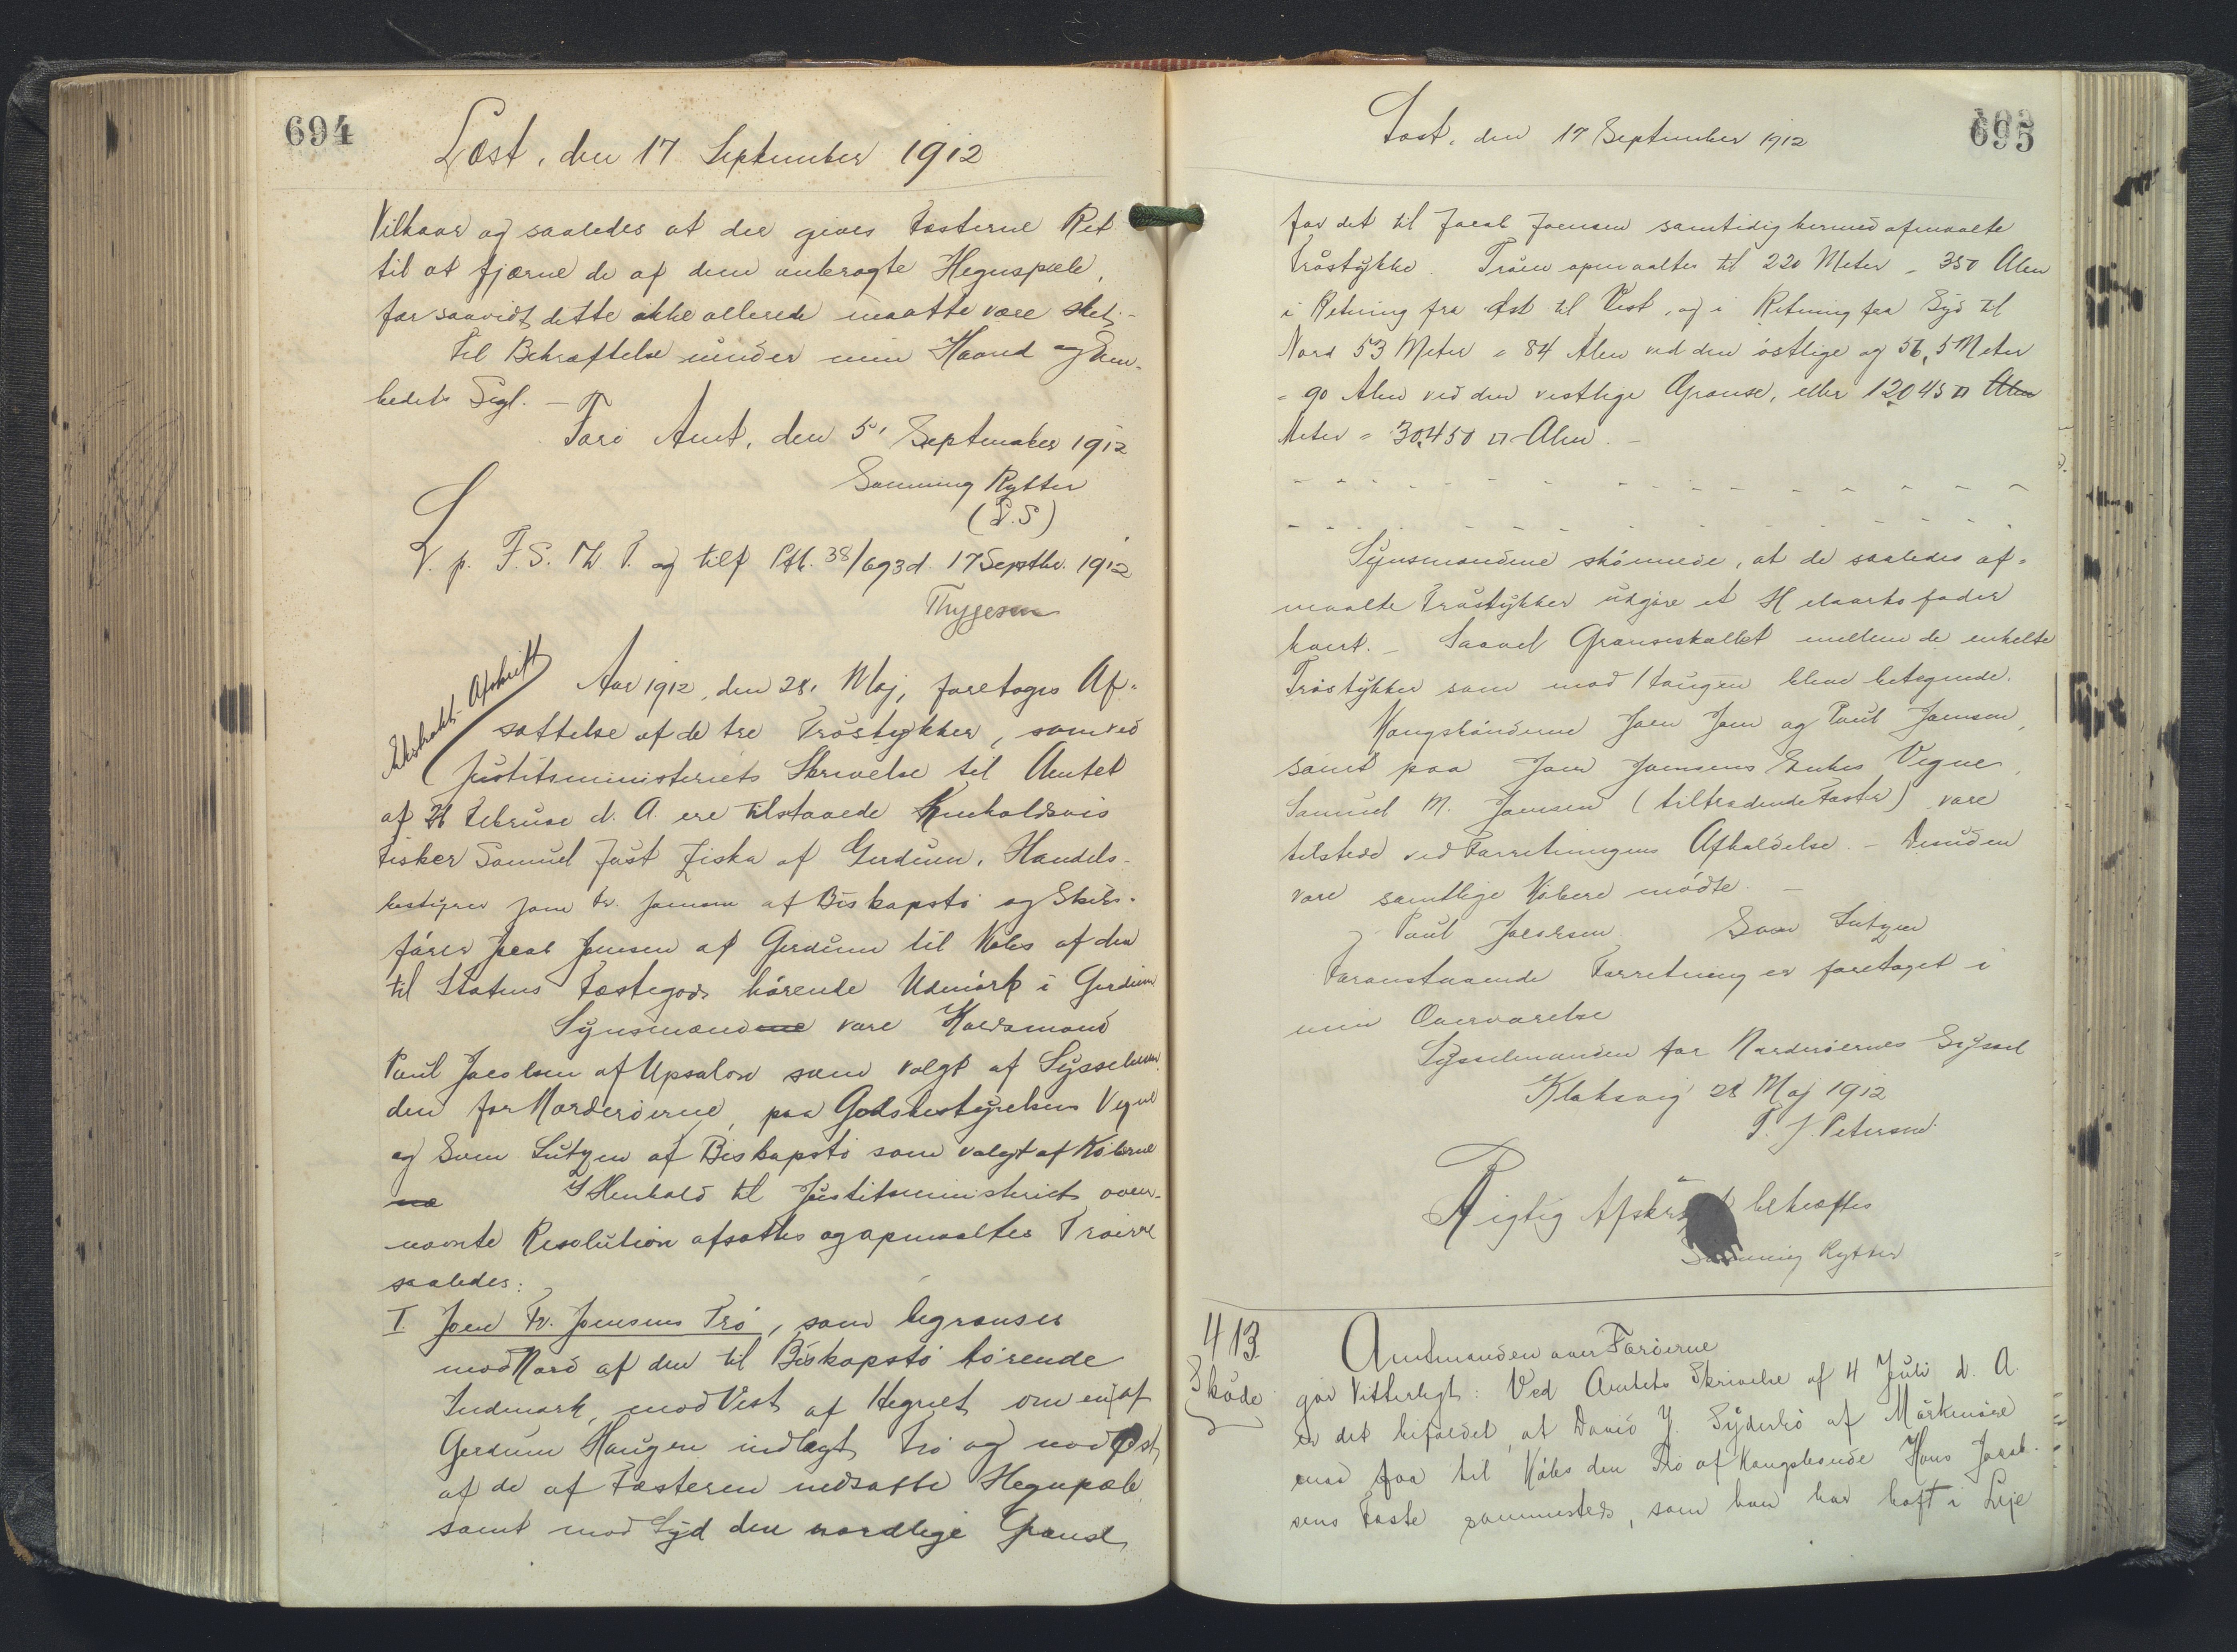 694
Læst, den 17 September 1912
Vilkaar og saaledes at der gives Fæsterne Ret
til at fjærne de af dem anbragte Hegnspæle,
forsaavidt dette ikke allerede maatte være sket.-
Til Bekræftelse under min Haand og Em-
bedets Segl. -
Færø Amt, den 5' September 1912
Svenning Rytter
(L.S)
V. p. F. S. Th P. og tilf Ptb. 38/693 d. 17 Septbr. 1912
Thygesen
Ekstrakt-Afskrift
Aar 1912, den 28, Maj, foretoges Af-
sættelse af de tre Trøstykker, som ved
Justitsministeriets Skrivelse til Amtet
af Februar d. A. ere tilstaaede henholdsvis
Fisker Samuel Just Ziska af Gerdum, Handels-
bestyrer Joen Fr. Joensen af Biskopstø og Skibs-
fører Jacob Joensen af Gerdum til Købs af den
til Statens Fæstegods hørende Udmark i Gerdum
Synsmændene vare Hovdsmand
Poul Jacobsen af Upsalon som valgt af Sysselman
den for Norderøerne, paa Godsbestyrelsens Vegne
og Sven Lutzen af Biskopstø som valgt af Køberne
ne I Henhold til Justitsministeriets oven-
nævnte Resolution afsattes og opmaaltes Trøerne
saaledes:
I. Joen Fr. Joensens Trø, som begrænses
mod Nord af den til Biskopstø hørende
Indmark, mod Vest af Hegnet om en af
Gerdum Haugen indlagt Trø og mod Øst
af de af Fæsteren nedsatte Hegnpæle,
samt mod Syd den nordlige Grænse
695
Læst, den 17 September 1912
for det til Jacob Joensen samtidig hermed afmaalte
Trøstykke. Trøen opmaaltes til 220 Meter = 350 Alen
i Retning fra Øst til Vest, og i Retning fra Syd til
Nord 53 Meter = 84 Alen ved den østlige og 56,5 Meter
= 90 Alen ved den vestlige Grænse, eller 12045 □ Alen
Meter = 30,450 □ Alen. -
- - - - - - - - - - - - - - - - -
- - - - - - - - - - - - - - - - -
Synsmændene skønnede, at de saaledes af-
maalte Trøstykker udgøre et Helaarksfoder
hvert. - Saavel Grænseskellet mellem de enkelte
Trøstykker som mod Haugen bleve betegnede.
Kongsbønderne Joen Joen og Poul Joensen,
samt paa Joen Joensens Enkes Vegne,
Samuel M. Joensen (tiltrædende Fæster) vare
tilstede ved Forretningens Afholdelse. - Desuden
vare samtlige Købere mødte. -
Poul Jacobsen Sven Lutzen
Foranstaaende Forretning er foretaget i
min Overværelse
Sysselmanden for Norderøernes Syssel
Klaksvig 28 Maj 1912
P. J. Petersen.
Rigtig Afskrift bekræftes
Svenning Rytter
413
Skøde
Amtmanden over Færøerne
gør Vitterligt: Ved Amtets Skrivelse af 4 Juli d. A.
er det bifaldet, at David J. Syderbø af Mørkenøre
maa faa til Købs den Trø af Kongsbonde Hans Jacob-
sens Fæste sammesteds, som han har haft i Leje